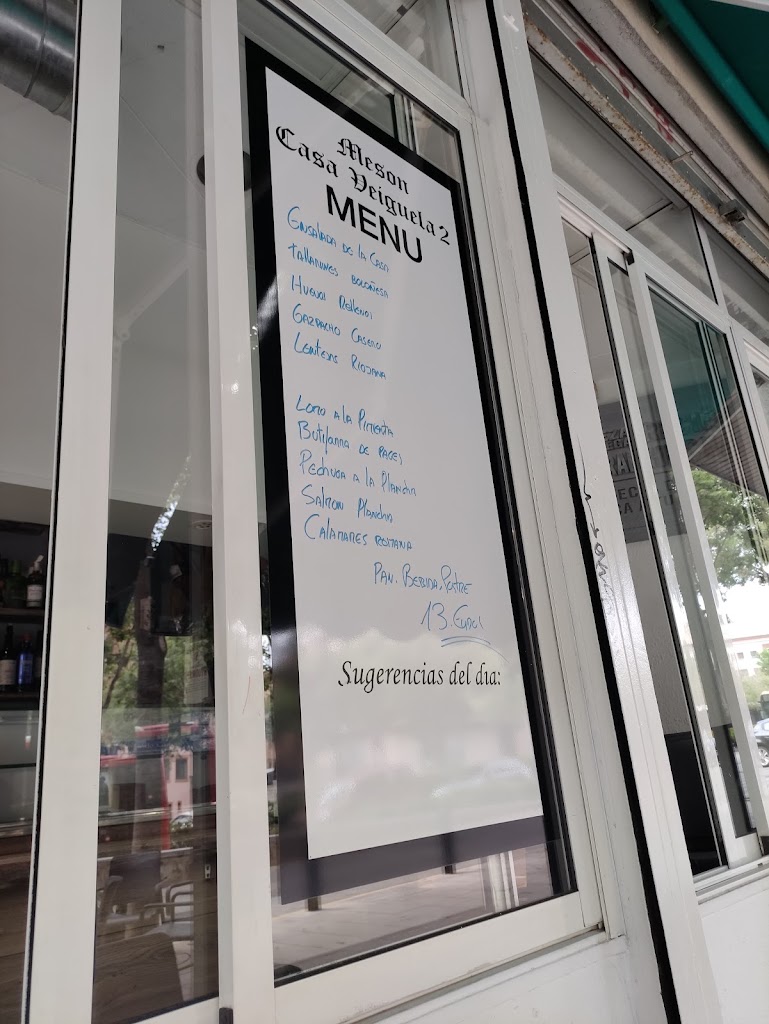 Meson
Casa Veiguela 2
MENU
ENSALADA DE LA CASA
TALLARINES BOLOÑESA
HUEVOS RELLENOS
GAZPACHO CASERO
LENTEJAS RIOJANA
LOMO A LA PIMIENTA
BUTIFARRA DE PAGES
PECHUGA A LA PLANCHA
SALMON PLANCHA
CALAMARES ROMANA
PAN. BEBIDA, POSTRE
13. EUROS
Sugerencias del dia: